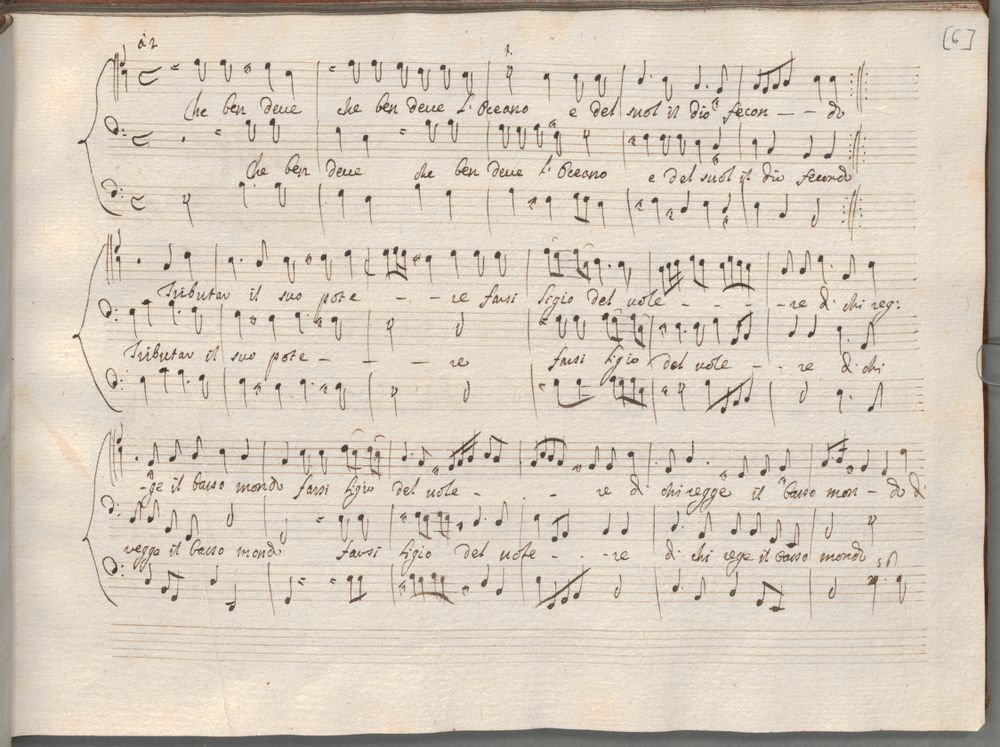 [6]
à 2
Che ben deve che ben deve l'Oceano e del suol il dio fecon - - do
Che ben deve che ben deve l'Oceano e del suol il dio fecondo
Tributar il suo pote - - re farsi ligio del vole - - - - re di chi reg:
Tributar il suo pote - - - re farsi ligio del vole - - re di chi
-ge il basso mondo farsi ligio del vole - - - re di chi regge il basso mon - do di
regge il basso mondo farsi ligio del vole - - re di chi rege il basso mondo